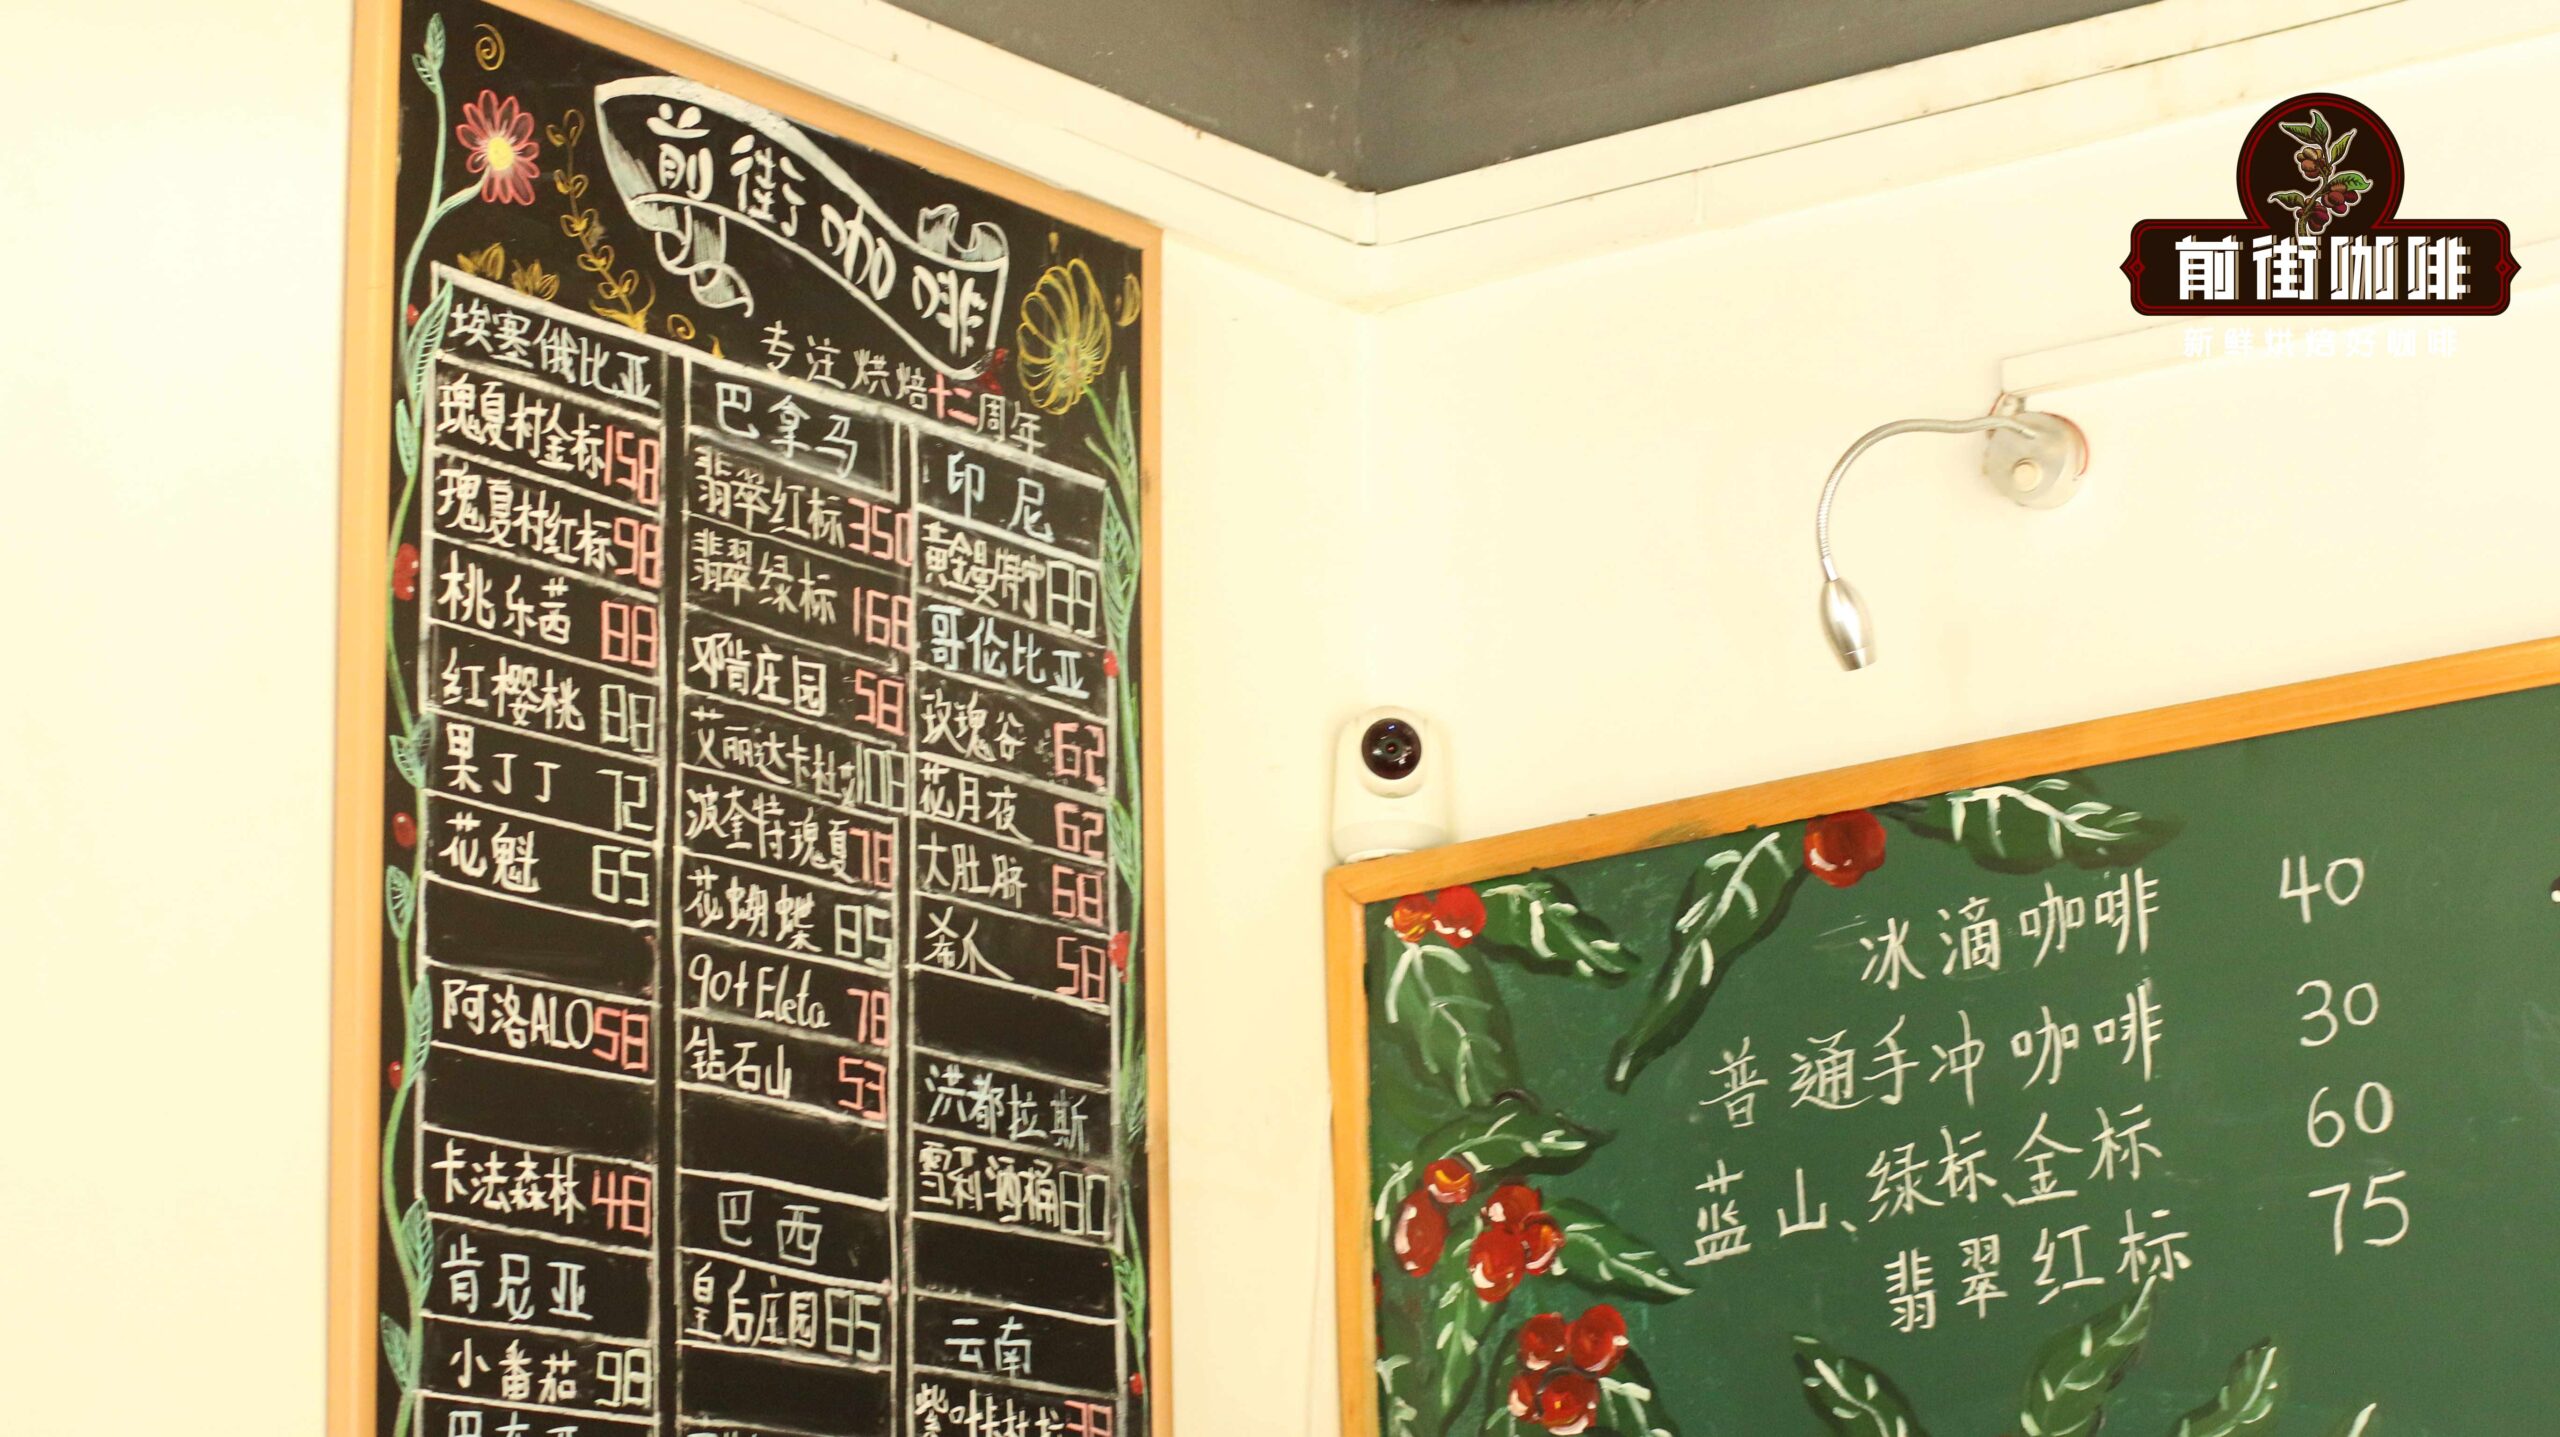 前街咖啡
专注烘焙十二周年
埃塞俄比亚
瑰夏村金标 158
瑰夏村红标 98
桃乐茜 88
红樱桃 88
果丁丁 72
花魁 65
阿洛ALO 58
卡法森林 48
肯尼亚
小番茄 98
巴拿马
翡翠红标 350
翡翠绿标 168
邓肯庄园 58
艾丽达卡杜艾 108
波奎特瑰夏 78
花蝴蝶 85
90+Eleta 78
钻石山 53
巴西
皇后庄园 85
印尼
黄金曼特宁 89
哥伦比亚
玫瑰谷 62
花月夜 62
大肚脐 68
希爪 58
洪都拉斯
雪莉酒桶 80
云南
冰滴咖啡 40
普通手冲咖啡 30
蓝山、绿标、金标 60
翡翠红标 75
前街咖啡
新鲜烘焙好咖啡